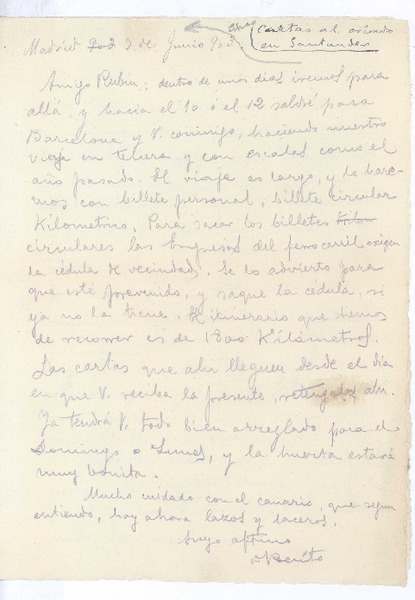 cartas al criado
en Santander
Madrid 3 de Junio 903
Amigo Rubin: dentro de unos dias iremos para
allá, y hacia el 10 ó el 12 saldré para
Barcelona y V. conmigo, haciendo nuestro
viaje en tercera y con escalas como el
año pasado. El viaje es largo, y lo hare-
mos con billete personal, billete circular
Kilometrico. Para sacar los billetes
circulares las Empresas del ferrocarril exigen
la cédula de vecindad. Se lo advierto para
que esté prevenido, y saque la cédula, si
ya no la tiene. El itinerario que hemos
de recorrer es de 1800 Kilómetros.
Las cartas que ahi lleguen desde el dia
en que V. reciba la presente, retengalas ahi.
Ya tendrá V. todo bien arreglado para el
Domingo o Lunes, y la huerta estará
muy bonita.
Mucho cuidado con el canario, que segun
entiendo, hay ahora lazos y laceros.
Suyo afmo
B Benito